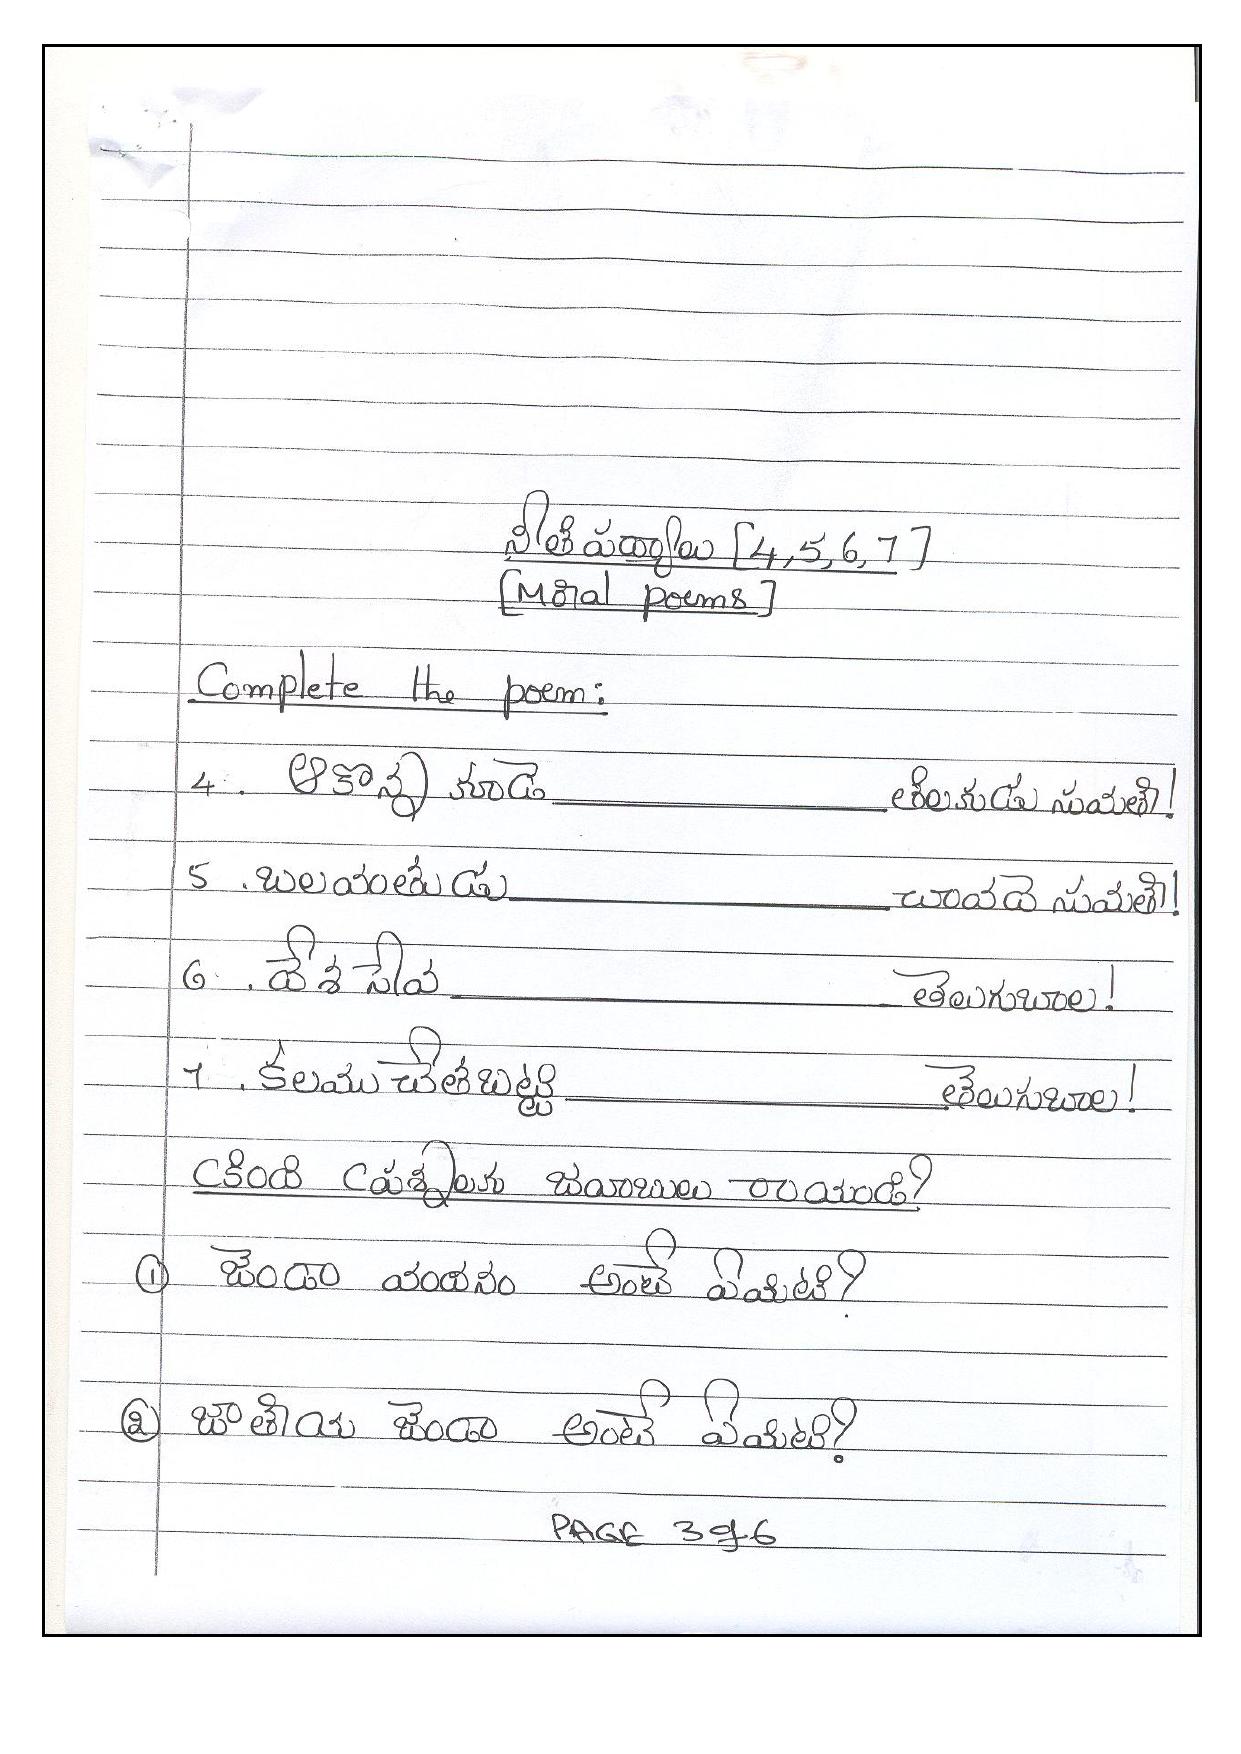 నీతి పద్యాలు [4,5,6,7]
[Moral poems]
Complete the poem:
4. ఆకొన్న కూడె__________ తిలకుడు సుమతీ!
5. బలవంతుడు__________ చావదె సుమతీ!
6. దేశ సేవ__________ తెలుగుబాల!
7. కలము చేతబట్టి__________ తెలుగుబాల!
క్రింది ప్రశ్నలకు జవాబులు రాయండి?
① జెండా వందనం అంటే ఏమిటి?
② జాతీయ జెండా అంటే ఏమిటి?
PAGE 3 of 6